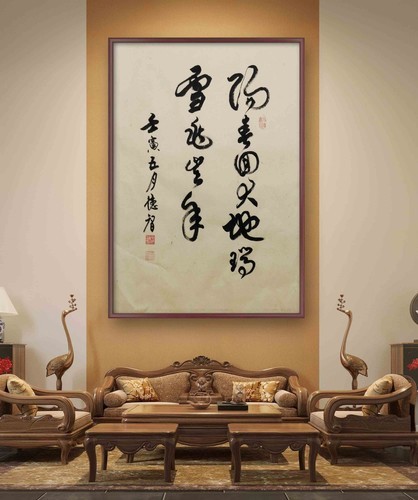 陽春回大地瑞
雪兆豐年
壬寅五月德